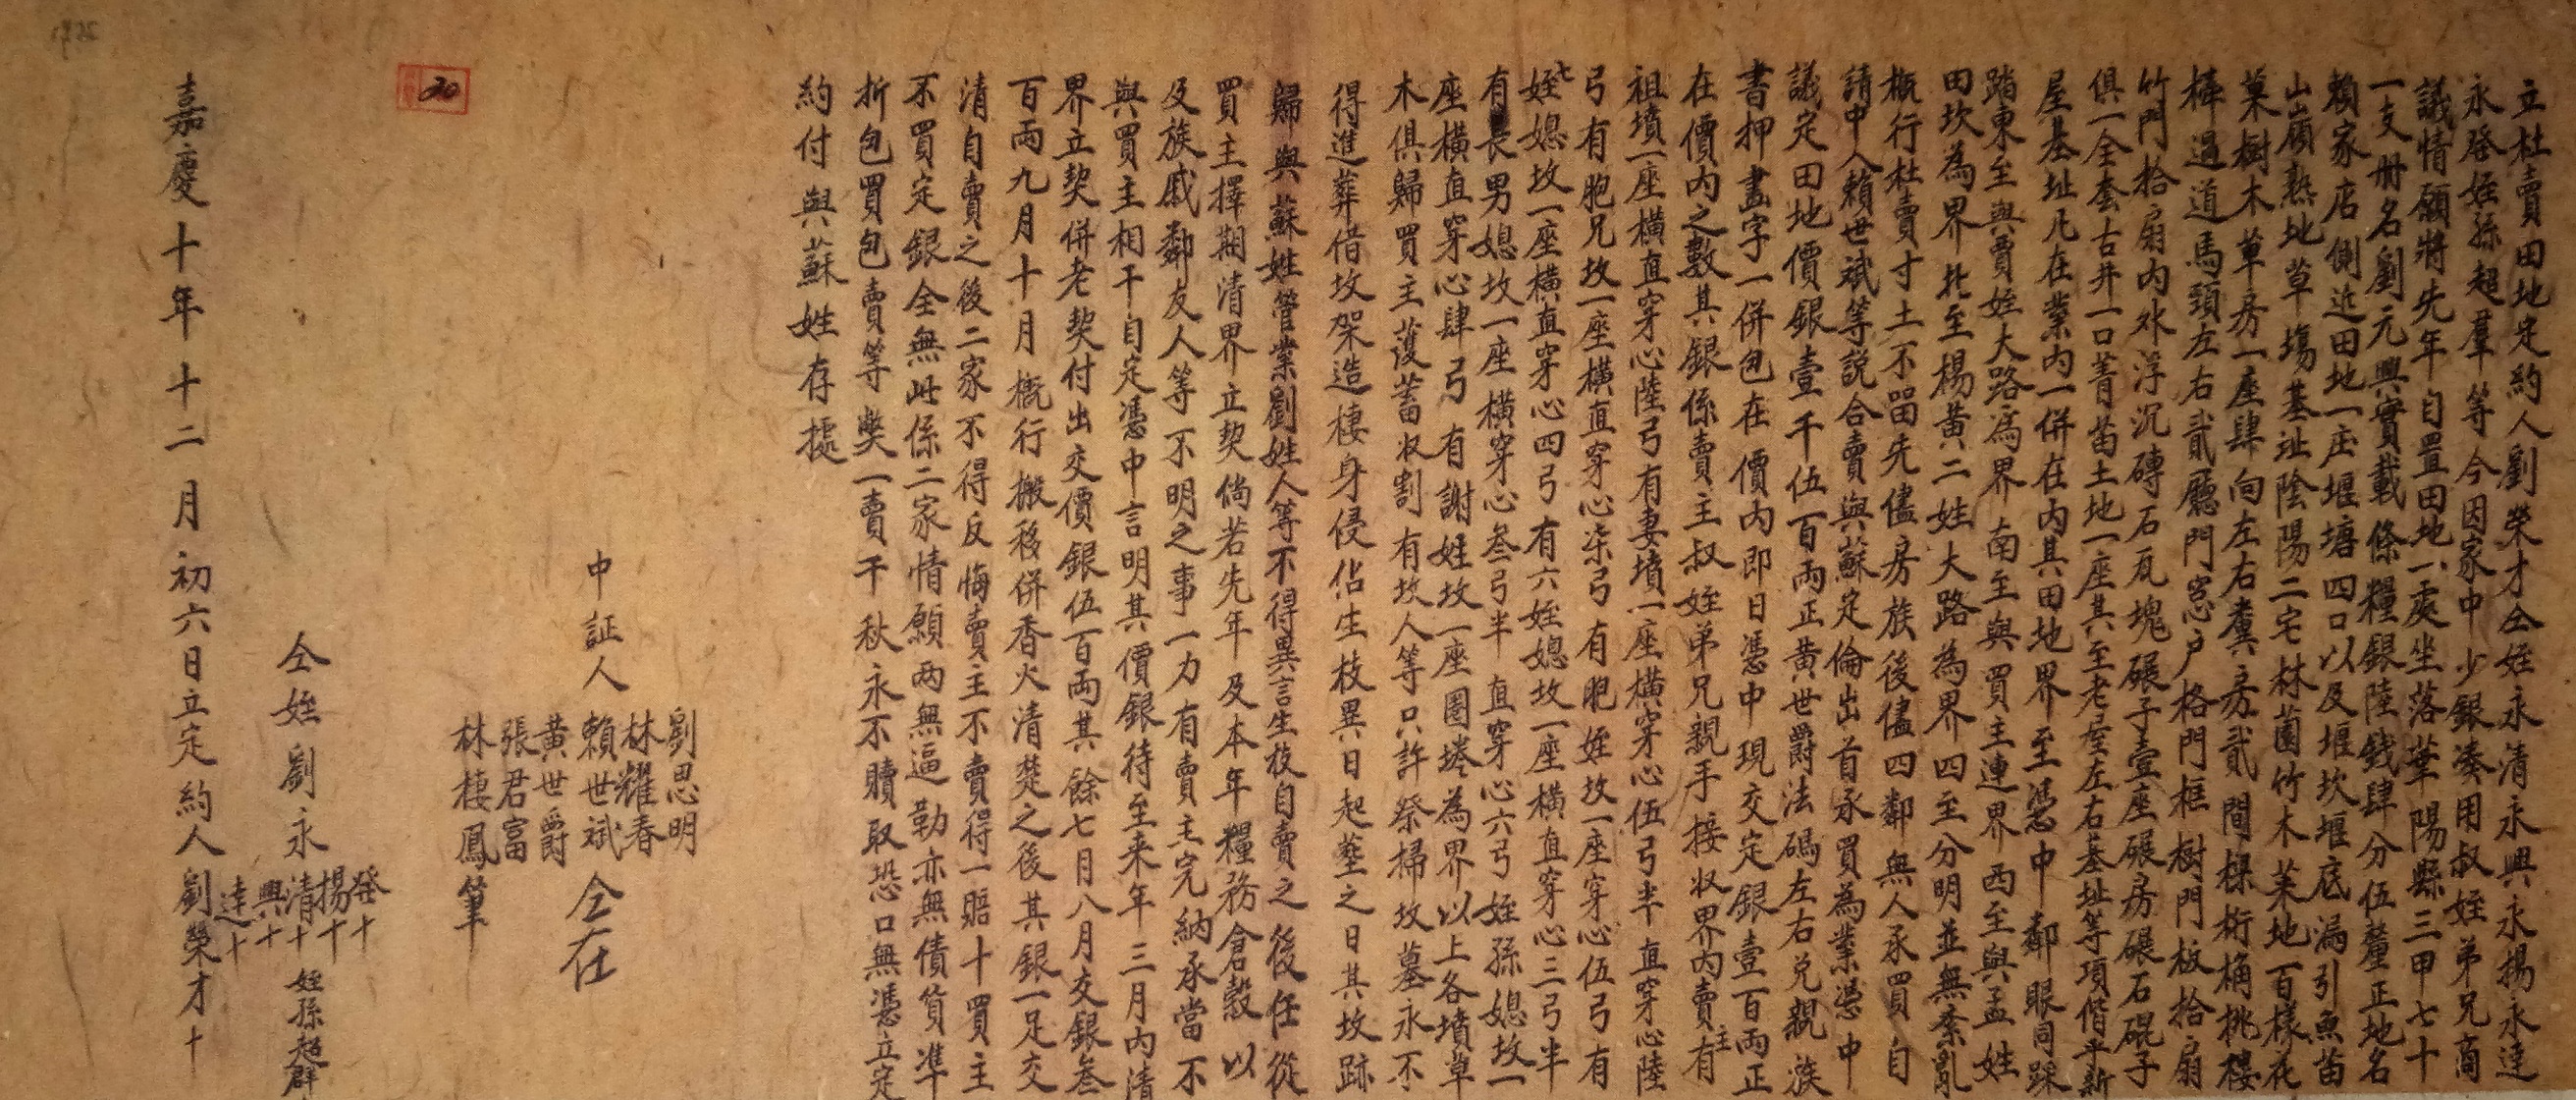 立杜賣田地定約人劉榮才仝姪永清永興永揚永達
永發姪孫超羣等今因家中少銀湊用叔姪弟兄商
議情願將先年自置田地一處坐落華陽縣三甲七十
一支册名劉元興實載條糧銀陸錢肆分伍釐正地名
賴家店側近田地一座堰塘四口以及堰坎堰底漏引魚苗
山嶺熟地草塲基址陰陽二宅林園竹木菜地百樣花
菓樹木草房一座肆向左右糞房貳間棵桁桷挑樓
樁過道馬頭左右貳廳門窓户格門框樹門板拾扇
竹門拾扇內外浮沉磚石瓦塊碾子壹座碾房碾石磙子
俱一全套古井一口菁苗土地一座其至老屋左右基址等項偕平新
屋基址凡在業內一併在內其田地界至憑中鄰眼同踩
踏東至與賈姓大路爲界南至與買主連界西至與孟姓
田坎為界北至楊黄二姓大路為界四至分明並無紊亂
概行杜賣寸土不留先儘房族後儘四鄰無人承買自
請中人賴世斌等説合賣與蘇定倫出首承買為業憑中
議定田地價銀壹千伍百兩正黄世爵法碼左右兑親族
書押畫字一併包在價內即日憑中現交定銀壹百兩正
在價內之數其銀係賣主叔姪弟兄親手接收界內賣主有
祖墳一座橫直穿心陸弓有妻墳一座橫穿心伍弓半直穿心陸
弓有胞兄坟一座橫直穿心柒弓有胞姪坟一座穿心伍弓有
七姪媳坟一座橫直穿心四弓有六姪媳坟一座橫直穿心三弓半
有長男媳坟一座橫穿心叁弓半直穿心六弓姪孫媳坟一
座橫直穿心肆弓有謝姓坟一座圍塋為界以上各墳草
木俱歸買主護蓄收割有坟人等只許祭掃坟墓永不
得進葬借坟架造棲身侵佔生枝異日起塟之日其坟跡
歸與蘇姓管業劉姓人等不得異言生枝自賣之後任從
買主擇期清界立契倘若先年及本年糧務倉穀以
及族戚鄰友人等不明之事一力有賣主完納承當不
與買主相干自定憑中言明其價銀待至来年三月內清
界立契併老契付出交價銀伍百兩其餘七月八月交銀叁
百兩九月十月概行搬移併香火清楚之後其銀一足交
清自賣之後二家不得反悔賣主不賣得一賠十買主
不買定銀全無此係二家情願两無逼勒亦無債貨準
折包買包賣等獘一賣千秋永不贖取恐口無憑立定
約付與蘇姓存據
劉思明
林耀春
中証人賴世斌仝在
黄世爵
張君富
林棲鳳筆
20
發十
揚十
仝姪劉永清十姪孫超群
興十
達十
嘉慶十年十二月初六日立定約人劉榮才十